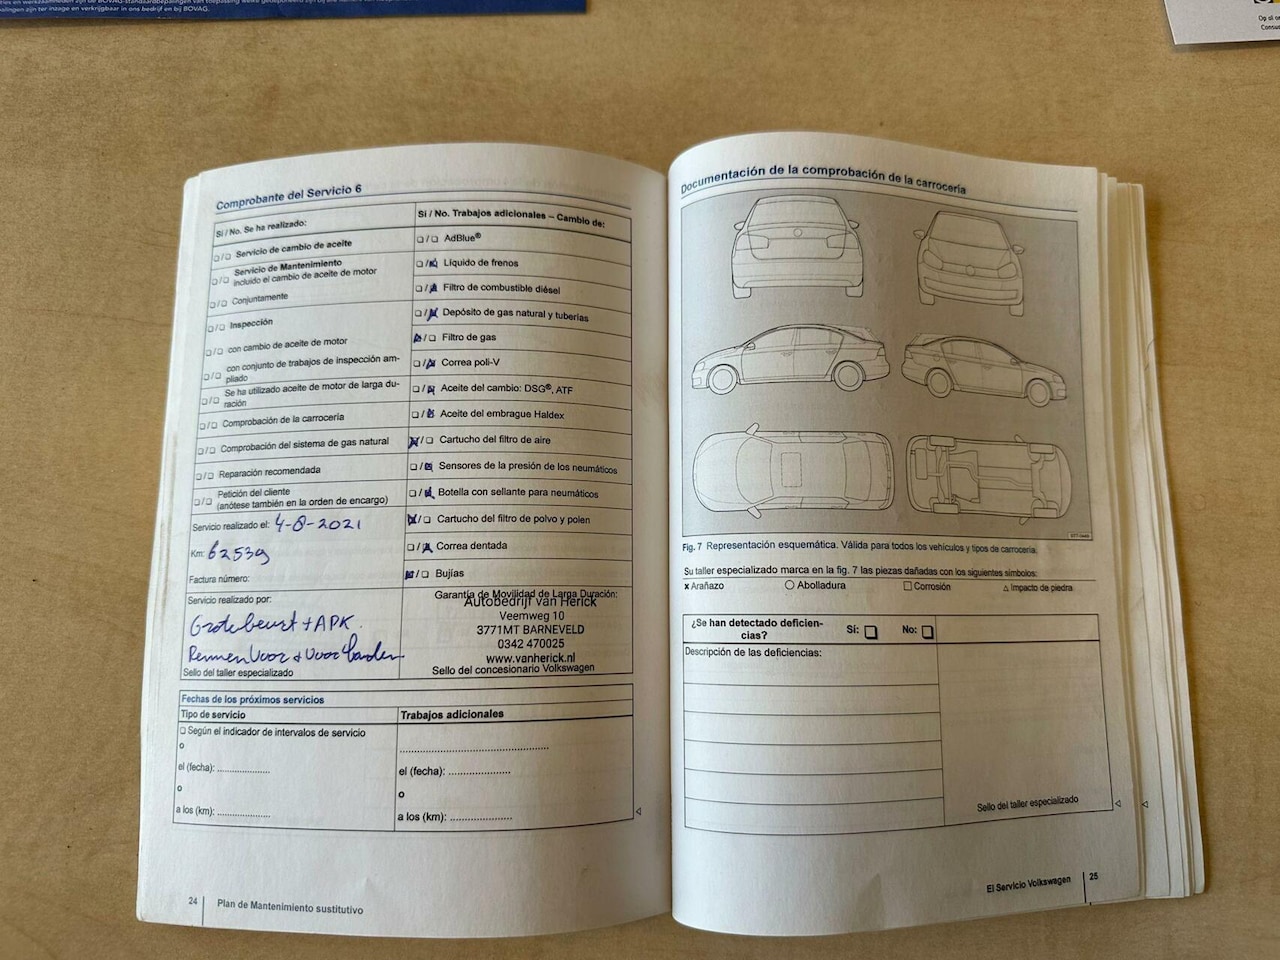 palingen zijn ter inzage en verkrijgbaar in ons bedrijf en bij BOVAG.
Op al on
Comprobante del Servicio 6
Sí / No. Se ha realizado:
❑/❑ Servicio de cambio de aceite
❑/❑ Servicio de Mantenimiento
incluido el cambio de aceite de motor
❑/❑ Conjuntamente
❑/❑ Inspección
❑/❑ con cambio de aceite de motor
❑/❑ con conjunto de trabajos de inspección am-
pliado
❑/❑ Se ha utilizado aceite de motor de larga du-
ración
❑/❑ Comprobación de la carrocería
❑/❑ Comprobación del sistema de gas natural
❑/❑ Reparación recomendada
❑/❑ Petición del cliente
(anótese también en la orden de encargo)
Servicio realizado el: 4-8-2021
Km: 62539
Factura número:
Servicio realizado por:
Grote beurt + APK.
Remmen Voor + Voor banden
Sello del taller especializado
Sí / No. Trabajos adicionales – Cambio de:
❑/❑ AdBlue®
❑/❑ Líquido de frenos
❑/❑ Filtro de combustible diésel
❑/❑ Depósito de gas natural y tuberías
❑/❑ Filtro de gas
❑/❑ Correa poli-V
❑/❑ Aceite del cambio: DSG®, ATF
❑/❑ Aceite del embrague Haldex
❑/❑ Cartucho del filtro de aire
❑/❑ Sensores de la presión de los neumáticos
❑/❑ Botella con sellante para neumáticos
❑/❑ Cartucho del filtro de polvo y polen
❑/❑ Correa dentada
❑/❑ Bujías
Garantía de Movilidad de Larga Duración:
Autobedrijf van Herick
Veemweg 10
3771MT BARNEVELD
0342 470025
www.vanherick.nl
Sello del concesionario Volkswagen
Fechas de los próximos servicios
Tipo de servicio
❑ Según el indicador de intervalos de servicio
o
el (fecha): ....................
o
a los (km): ....................
Trabajos adicionales
......................................................
el (fecha): ......................
o
a los (km): ......................
24
Plan de Mantenimiento sustitutivo
Documentación de la comprobación de la carrocería
Fig. 7 Representación esquemática. Válida para todos los vehículos y tipos de carrocería.
Su taller especializado marca en la fig. 7 las piezas dañadas con los siguientes símbolos:
x Arañazo
○ Abolladura
□ Corrosión
△ Impacto de piedra
¿Se han detectado deficien-
cias?
Sí: ❑
No: ❑
Descripción de las deficiencias:
Sello del taller especializado
El Servicio Volkswagen
25